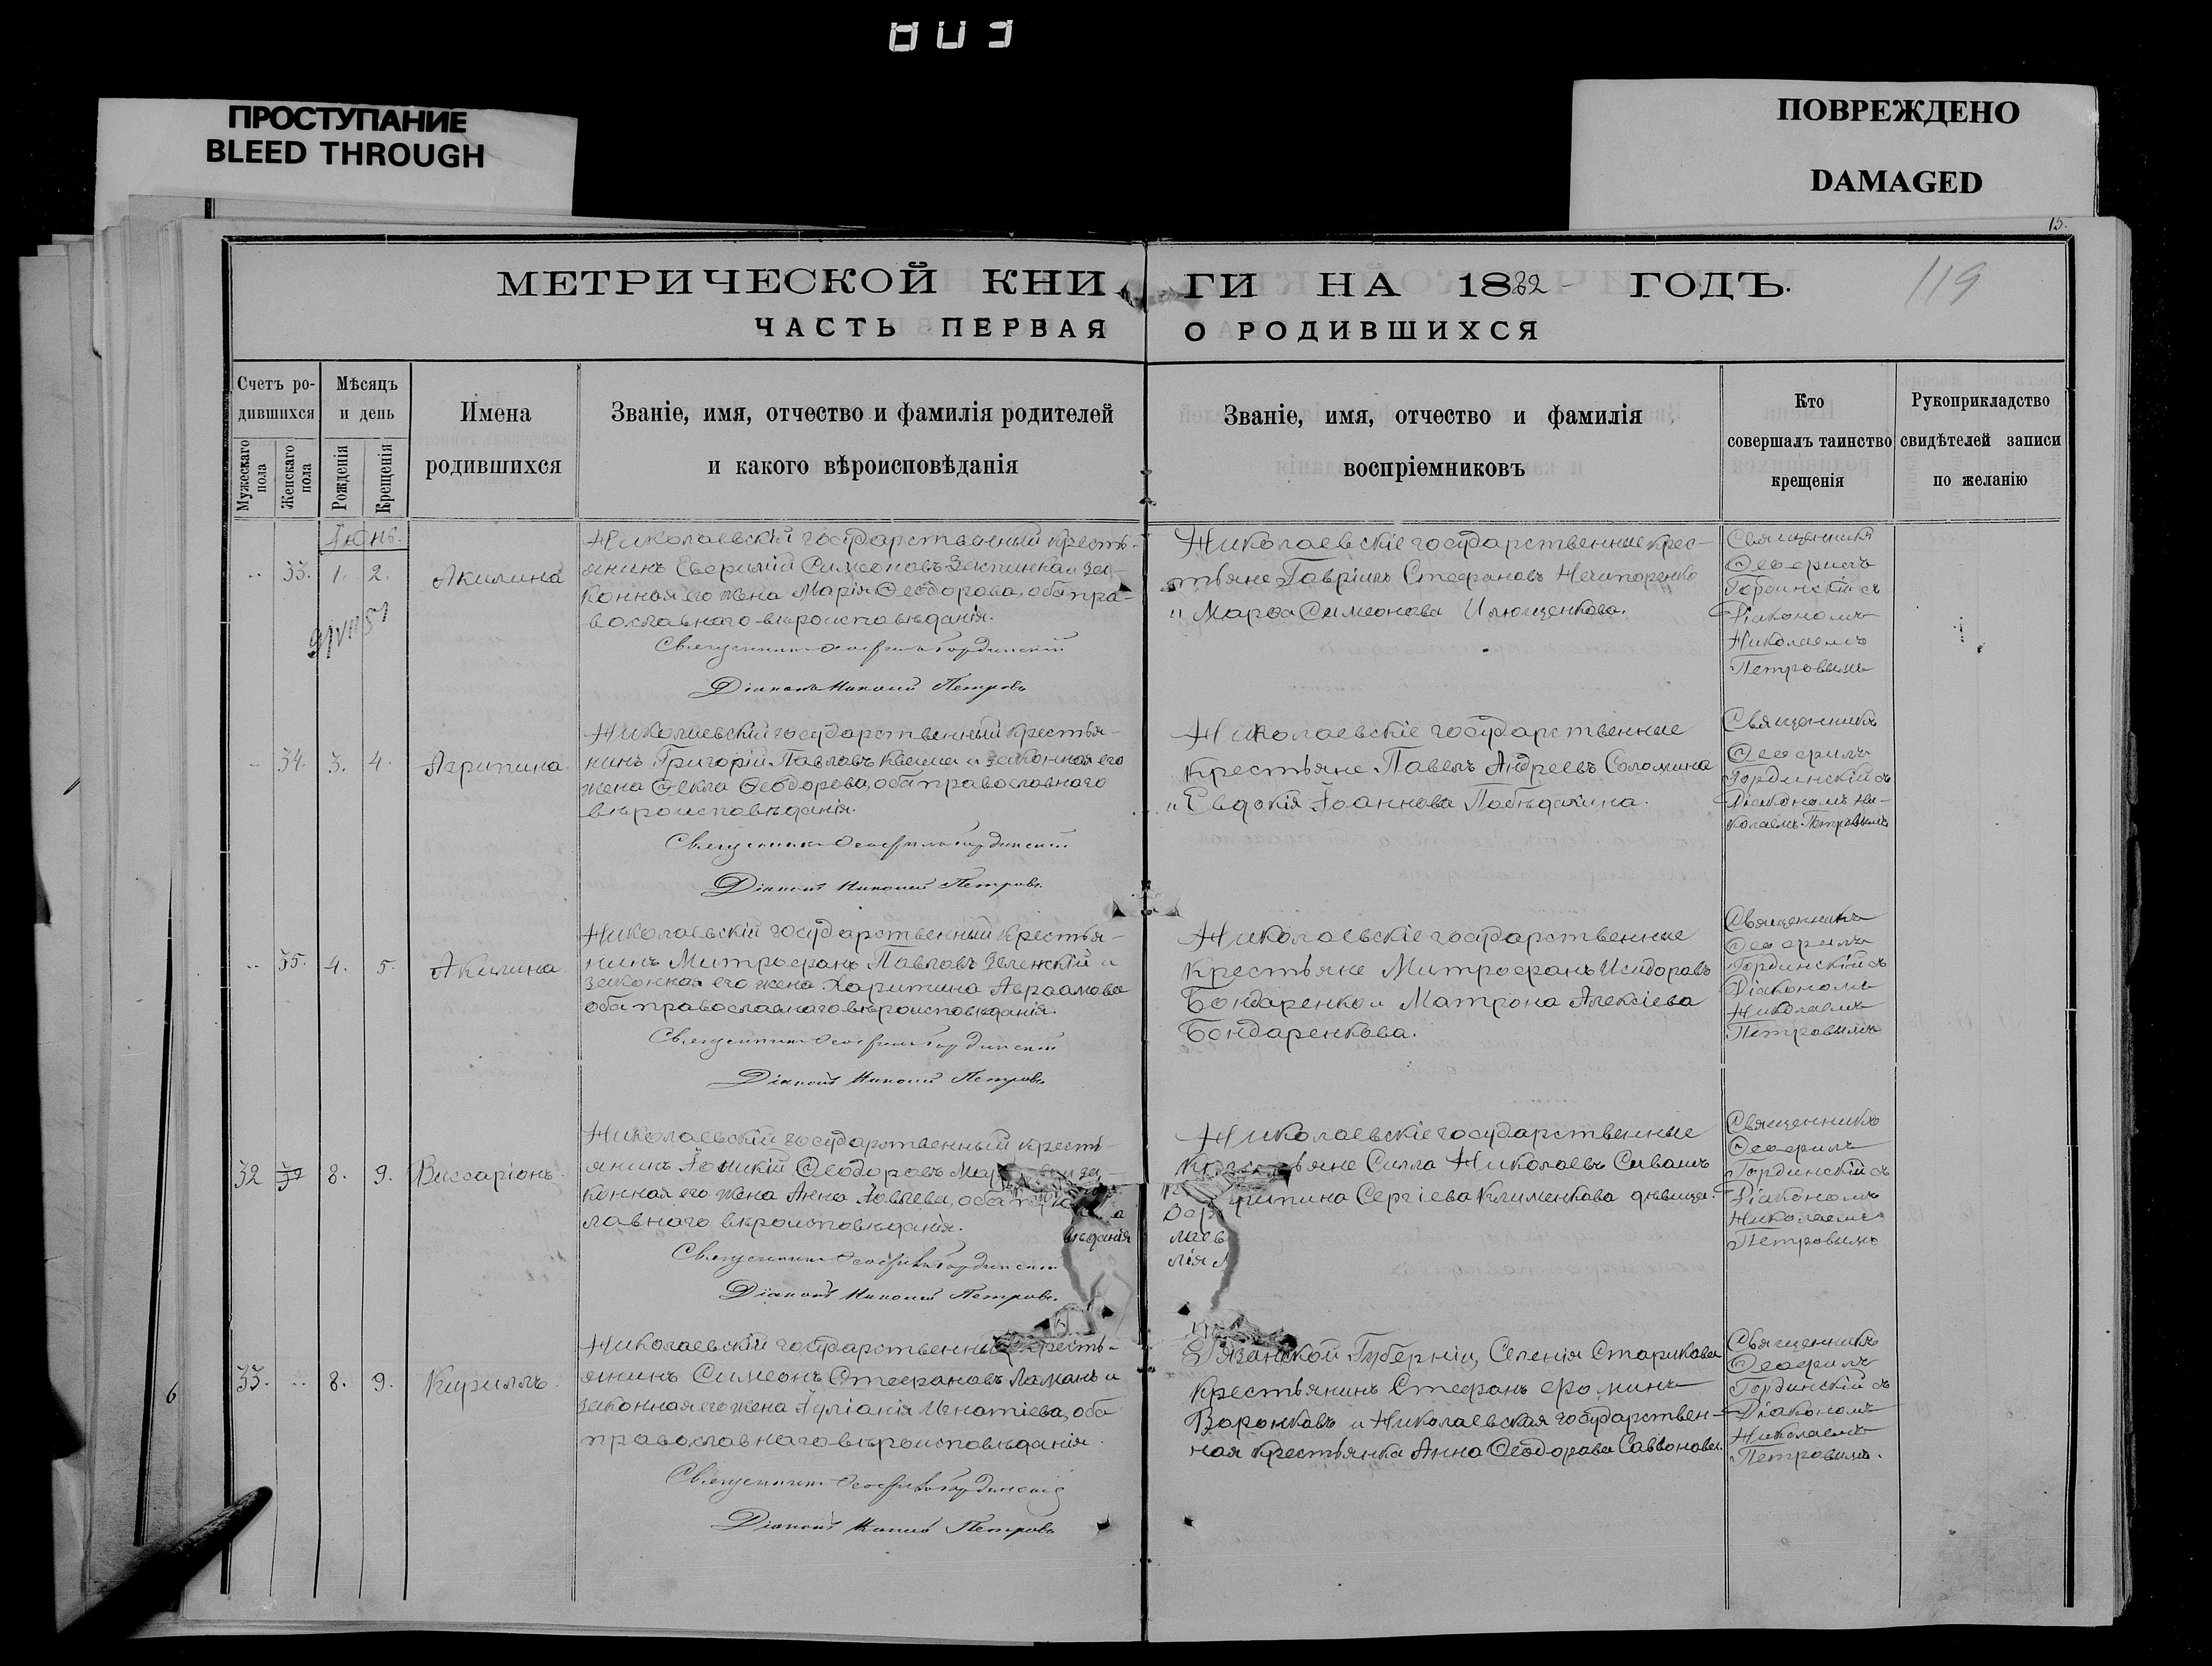 803
ПРОСТУПАНИЕ
BLEED THROUGH
ПОВРЕЖДЕНО
DAMAGED
15.
119
МЕТРИЧЕСКОЙ КНИ ГИ НА 1882 ГОДЪ.
ЧАСТЬ ПЕРВАЯ О РОДИВШИХСЯ
Счетъ ро-
дившихся
Мужескаго
пола
Женскаго
пола
Мѣсяцъ
и день
Рожденія
Крещенія
Имена
родившихся
Званіе, имя, отчество и фамилія родителей
и какого вѣроисповѣданія
Званіе, имя, отчество и фамилія
воспріемниковъ
Кто
совершалъ таинство
крещенія
Рукоприкладство
свидѣтелей записи
по желанію
Іюнь.
33. 1. 2. Акилина
Николаевскій государственный кресть-
янинъ Евфимій Симеоновъ и за-
конная его жена Марія Ѳеодорова, оба пра-
вославнаго вѣроисповѣданія.
Священникъ Ѳеофилъ Гординскій
Діаконъ Николай Петровъ
Николаевскіе государственные крес-
тьяне Гавріилъ Стефановъ Нечипоренко
и Марѳа Симеонова Илющенкова.
Священникъ
Ѳеофилъ
Гординскій съ
Діакономъ
Николаемъ
Петровымъ
34. 3. 4. Агрипина
Николаевскій государственный крестья-
нинъ Григорій Павловъ Кваша и законная его
жена Ѳекла Ѳеодорова, оба православнаго
вѣроисповѣданія.
Священникъ Ѳеофилъ Гординскій
Діаконъ Николай Петровъ.
Николаевскіе государственные
крестьяне Павелъ Андреевъ Соломина
и Евдокія Іоаннова
Священникъ
Ѳеофилъ
Гординскій съ
Діакономъ Ни-
колаемъ Петровымъ
35. 4. 5. Акилина.
Николаевскій государственный крестья-
нинъ Митрофанъ Павловъ Зеленскій и
законная его жена Харитина Авраамова
оба православнаго вѣроисповѣданія.
Священникъ Ѳеофилъ Гординскій
Діаконъ Николай Петровъ
Николаевскіе государственные
крестьяне Митрофанъ Исидоровъ
Бондаренко и Матрона Алексіева
Бондаренкова.
Священникъ
Ѳеофилъ
Гординскій съ
Діакономъ
Николаемъ
Петровымъ
32 8. 9. Виссаріонъ.
Николаевскій государственный кресть-
янинъ Іоникій Ѳеодоровъ
конная его жена Анна Іовлева, оба
славнаго вѣроисповѣданія.
вѣданія
Священникъ Ѳеофилъ Гординскій
Діаконъ Николай Петровъ.
Николаевскіе государственные
Силла Николаевъ Сивашъ
Сергіева Клименкова дѣвица.
Священникъ
Ѳеофилъ
Гординскій съ
Діакономъ
Николаемъ
Петровымъ
33. 8. 9. Кириллъ.
Николаевскій государственный кресть-
янинъ Симеонъ Стефановъ Ломанъ и
законная его жена Іуліанія Игнатіева, оба
православнаго вѣроисповѣданія.
Священникъ Ѳеофилъ Гординскій
Діаконъ Николай Петровъ
Рязанской Губерніи, Селенія Старикова
крестьянинъ Стефанъ Фоминъ
Воронковъ и Николаевская государствен-
ная крестьянка Анна Ѳеодорова Саввонова.
Священникъ
Ѳеофилъ
Гординскій съ
Діакономъ
Николаемъ
Петровымъ.
6